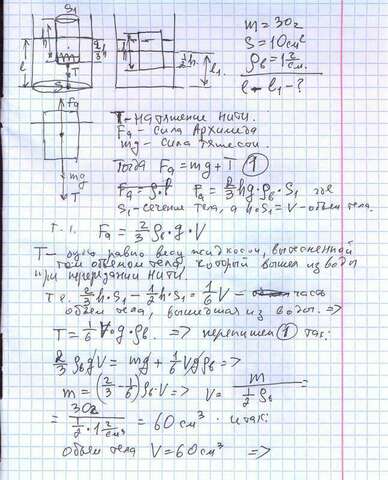 S₁
m = 30г
S = 10см²
ρв = 1 г/см³
l - l₁ - ?
h
2/3 h
l
T
S
h
1/2 h
l₁
Fa
mg
T
T - натяжение нити.
Fa - сила Архимеда
mg - сила тяжести.
Тогда Fa = mg + T (1)
Fa = 2/3 hg · ρв · S₁ где
S₁ - сечение тела, а h·S₁ = V - объём тела.
т.е. Fa = 2/3 · ρв · g · V
T - равно весу жидкости, вытесненной
объёмом тела, который вышел из воды
при пережигании нити.
т.е. 2/3 h·S₁ - 1/2 h·S₁ = 1/6 V - часть
объём тела, вышедшая из воды. =>
T = 1/6 V g · ρв. => перепишем (1) так:
2/3 ρв g V = mg + 1/6 V g ρв =>
m = (2/3 - 1/6) ρв · V => V = m / (1/2 ρв) =
= 30г / (1/2 · 1 г/см³) = 60 см³. итак:
объём тела V = 60 см³ =>